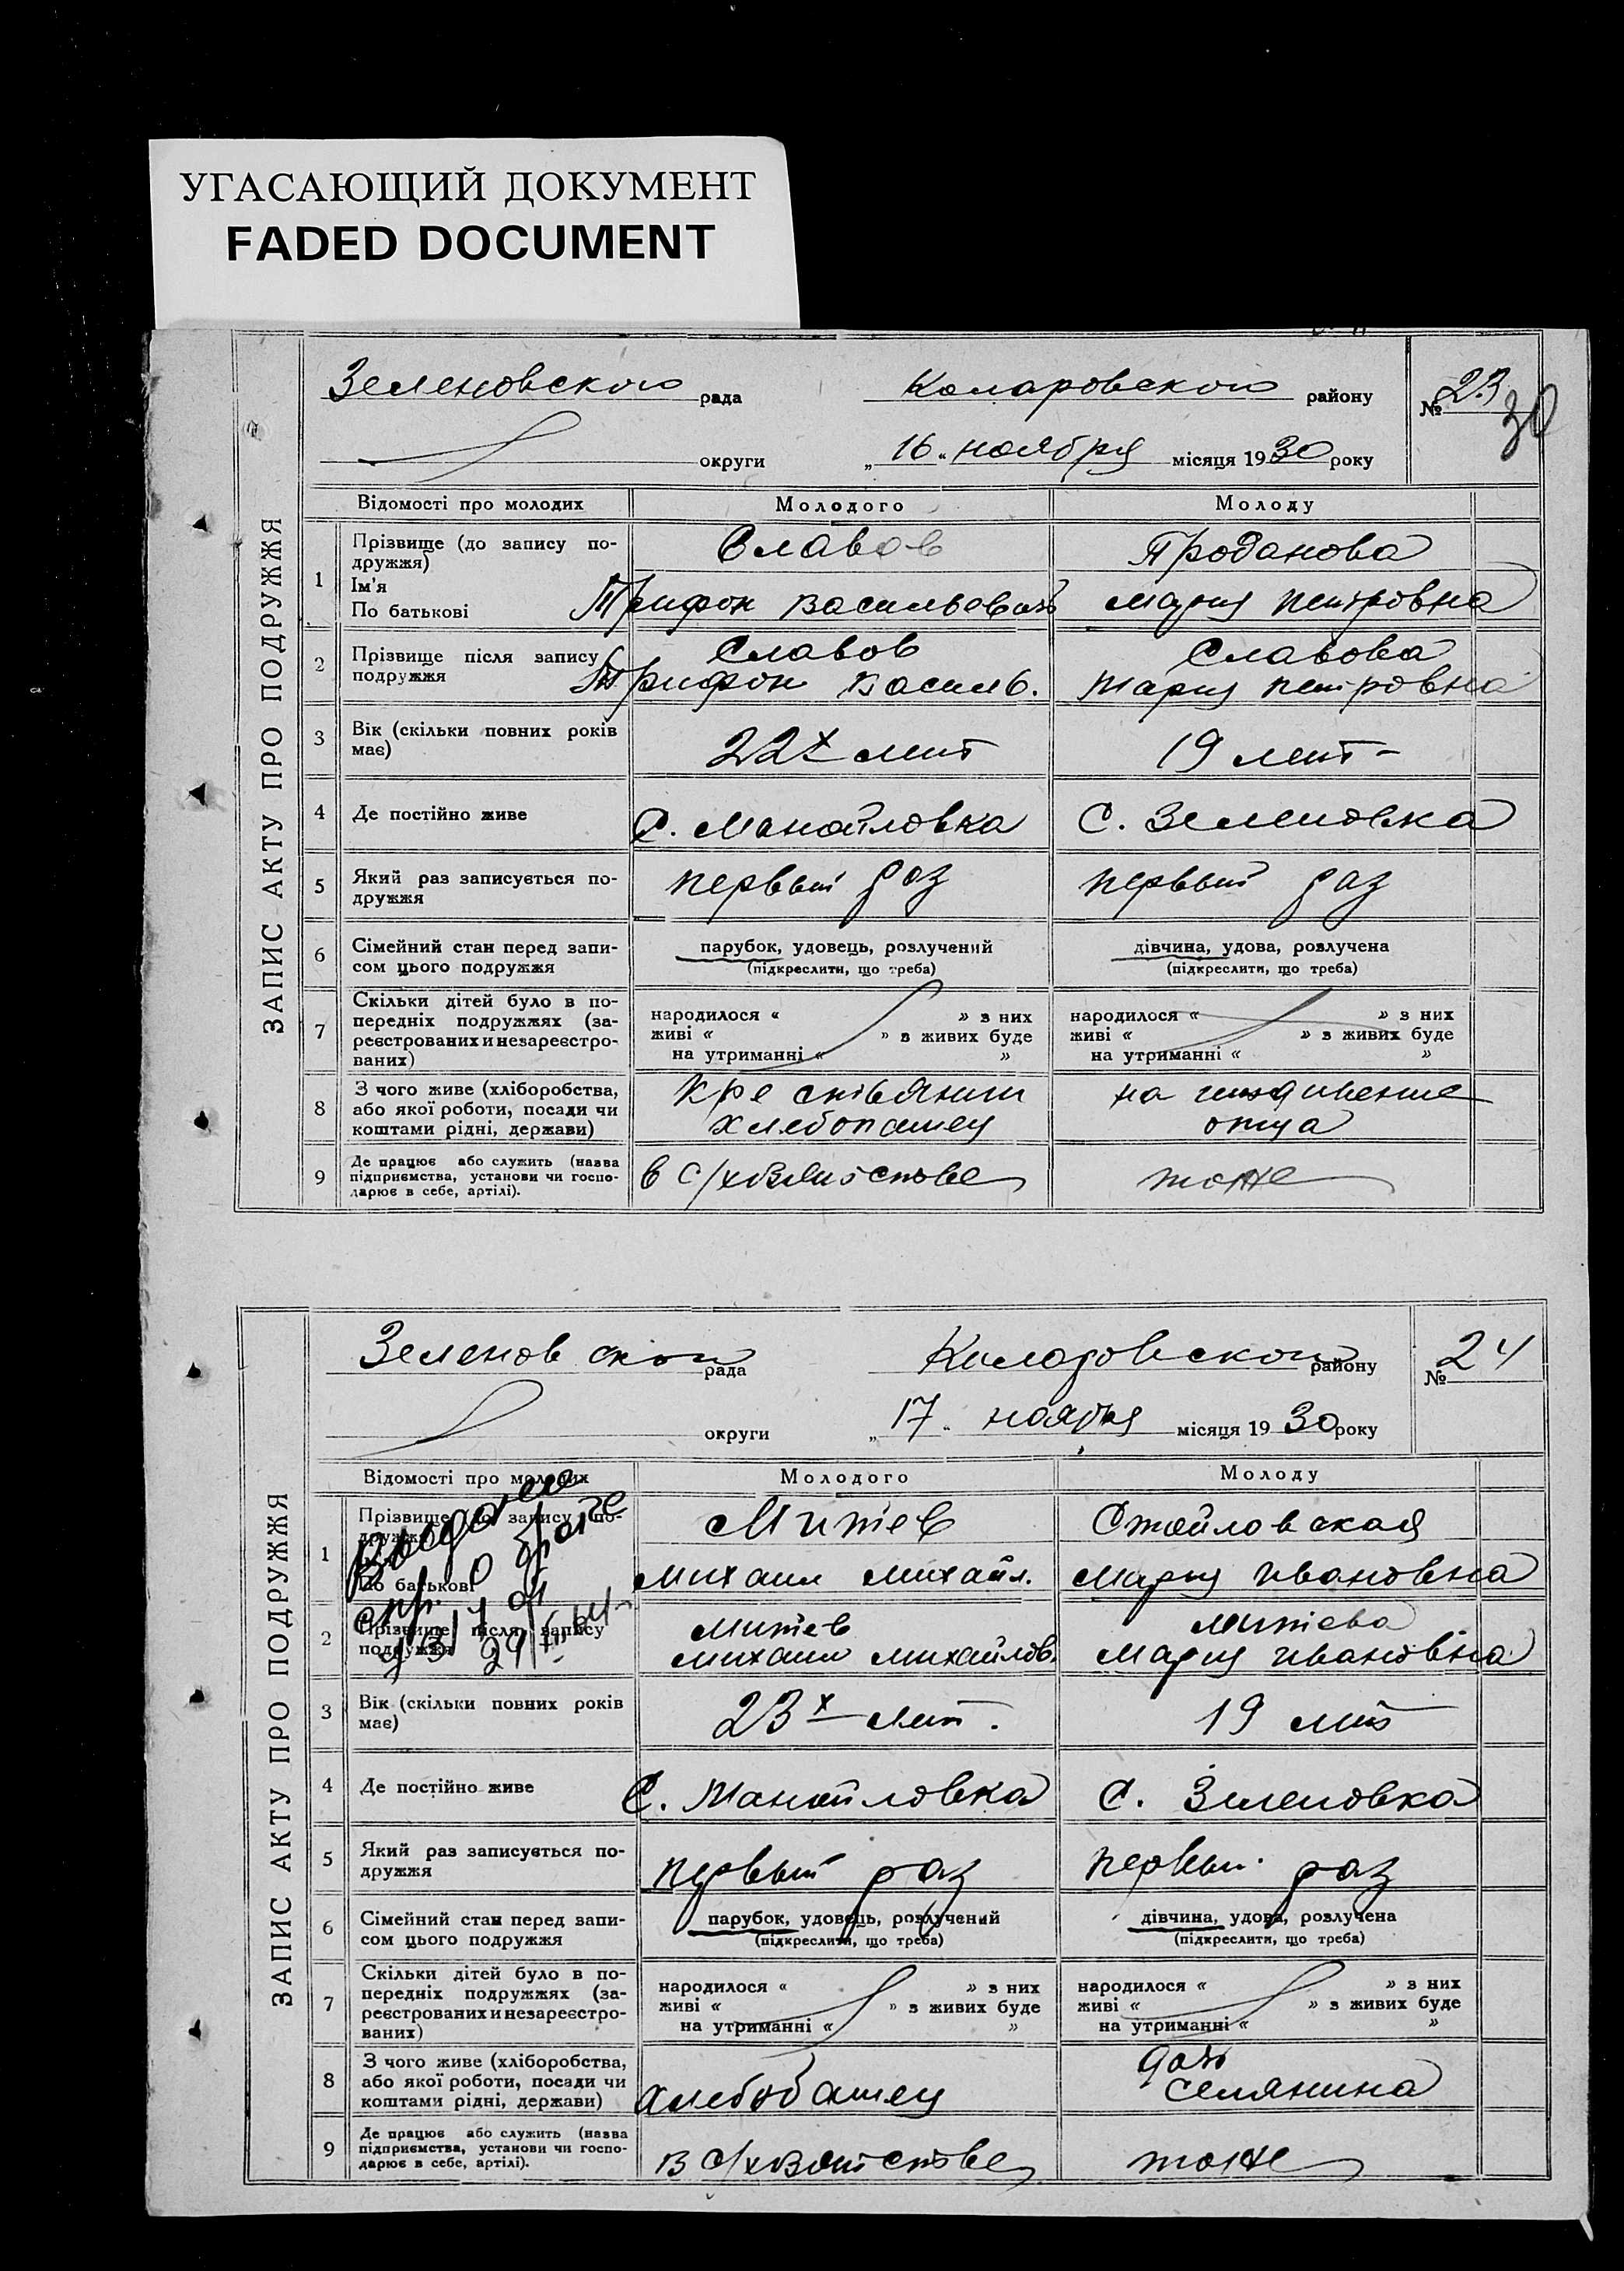 УГАСАЮЩИЙ ДОКУМЕНТ
FADED DOCUMENT
ЗАПИС АКТУ ПРО ПОДРУЖЖЯ
Зеленовского рада Коларовского району № 23
30
округи „16" ноября місяця 1930 року
Відомості про молодих Молодого Молоду
1 Прізвище (до запису по-
дружжя)
Ім'я
По батькові
Славов Проданова
Трифон Васильевич Мария Петровна
2 Прізвище після запису
подружжя
Славов Славова
Трифон Василь. Мария Петровна
3 Вік (скільки повних років
має)
22х лет 19 лет-
4 Де постійно живе С. Манойловка С. Зеленовка
5 Який раз записується по-
дружжя
первый раз первый раз
6 Сімейний стан перед запи-
сом цього подружжя
парубок, удовець, розлучений дівчина, удова, розлучена
(підкреслити, що треба) (підкреслити, що треба)
7 Скільки дітей було в по-
передніх подружжях (за-
реєстрованих и незареєстро-
ваних)
народилося « » з них народилося « » з них
живі « » з живих буде живі « » з живих буде
на утриманні « » на утриманні « »
8 З чого живе (хліборобства,
або якої роботи, посади чи
коштами рідні, держави)
крестьянин на
хлебопашец отца
9 Де працює або служить (назва
підприємства, установи чи госпо-
дарює в себе, артілі).
в с/хозяйстве тоже
ЗАПИС АКТУ ПРО ПОДРУЖЖЯ
Зеленовской рада Коларовского району № 24
округи „17" ноября місяця 1930 року
Відомості про молодих Молодого Молоду
1 Прізвище (до запису по-
дружжя)
По батькові
Митев Стойловская
Михаил Михайл. Мария Ивановна
2 Прізвище після запису
подружжя
Митев Митева
Михаил Михайлов. Мария Ивановна
Выдано
спр. о браке
3 Вік (скільки повних років
має)
23х лет. 19 лет
4 Де постійно живе С. Манойловка С. Зеленовка
5 Який раз записується по-
дружжя
первый раз первый раз
6 Сімейний стан перед запи-
сом цього подружжя
парубок, удовець, розлучений дівчина, удова, розлучена
(підкреслити, що треба) (підкреслити, що треба)
7 Скільки дітей було в по-
передніх подружжях (за-
реєстрованих и незареєстро-
ваних)
народилося « » з них народилося « » з них
живі « » з живих буде живі « » з живих буде
на утриманні « » на утриманні « »
8 З чого живе (хліборобства,
або якої роботи, посади чи
коштами рідні, держави)
хлебобашец дочь
селянина
9 Де працює або служить (назва
підприємства, установи чи госпо-
дарює в себе, артілі).
в с/хозяйстве тоже